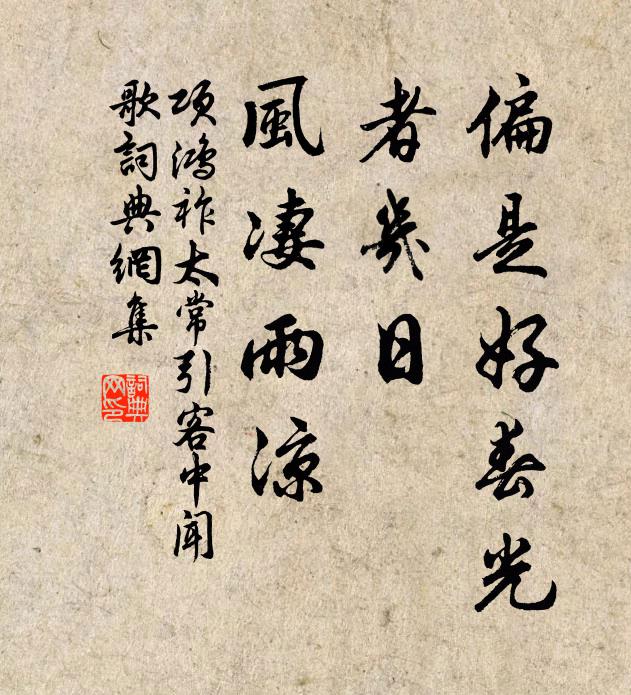 偏是好春光
者幾日
風凄雨涼
項鴻祚太常引客中聞
歌詞典網集
詞典
网印